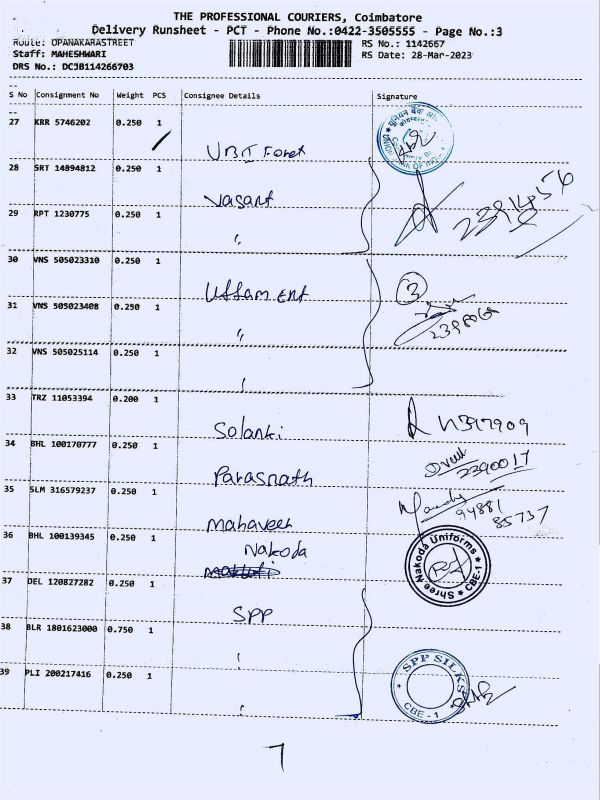 THE PROFESSIONAL COURIERS, Coimbatore
Delivery Runsheet - PCT - Phone No.:0422-3505555 - Page No.:3
Route: OPANAKARASTREET RS No.: 1142667
Staff: MAHESHWARI RS Date: 28-Mar-2023
DRS No.: DCJB114266703
S No Consignment No Weight PCS Consignee Details Signature
27 KRR 5746202 0.250 1
28 SRT 14894812 0.250 1
Vasant
29 RPT 1230775 0.250 1
"
30 VNS 505023310 0.250 1
Uttam Ent 3
31 VNS 505023408 0.250 1
"
32 VNS 505025114 0.250 1
33 TRZ 11053394 0.200 1
Solanki
34 BHL 100170777 0.250 1
Parasnath 2390017
35 SLM 316579237 0.250 1
Mahaveer 94881
85737
36 BHL 100139345 0.250 1
Nakoda Shree Nakoda Uniforms CBE-1
37 DEL 120827282 0.250 1
SPP
38 BLR 1801623000 0.750 1
39 PLI 200217416 0.250 1
SPP SILKS CBE - 1
7